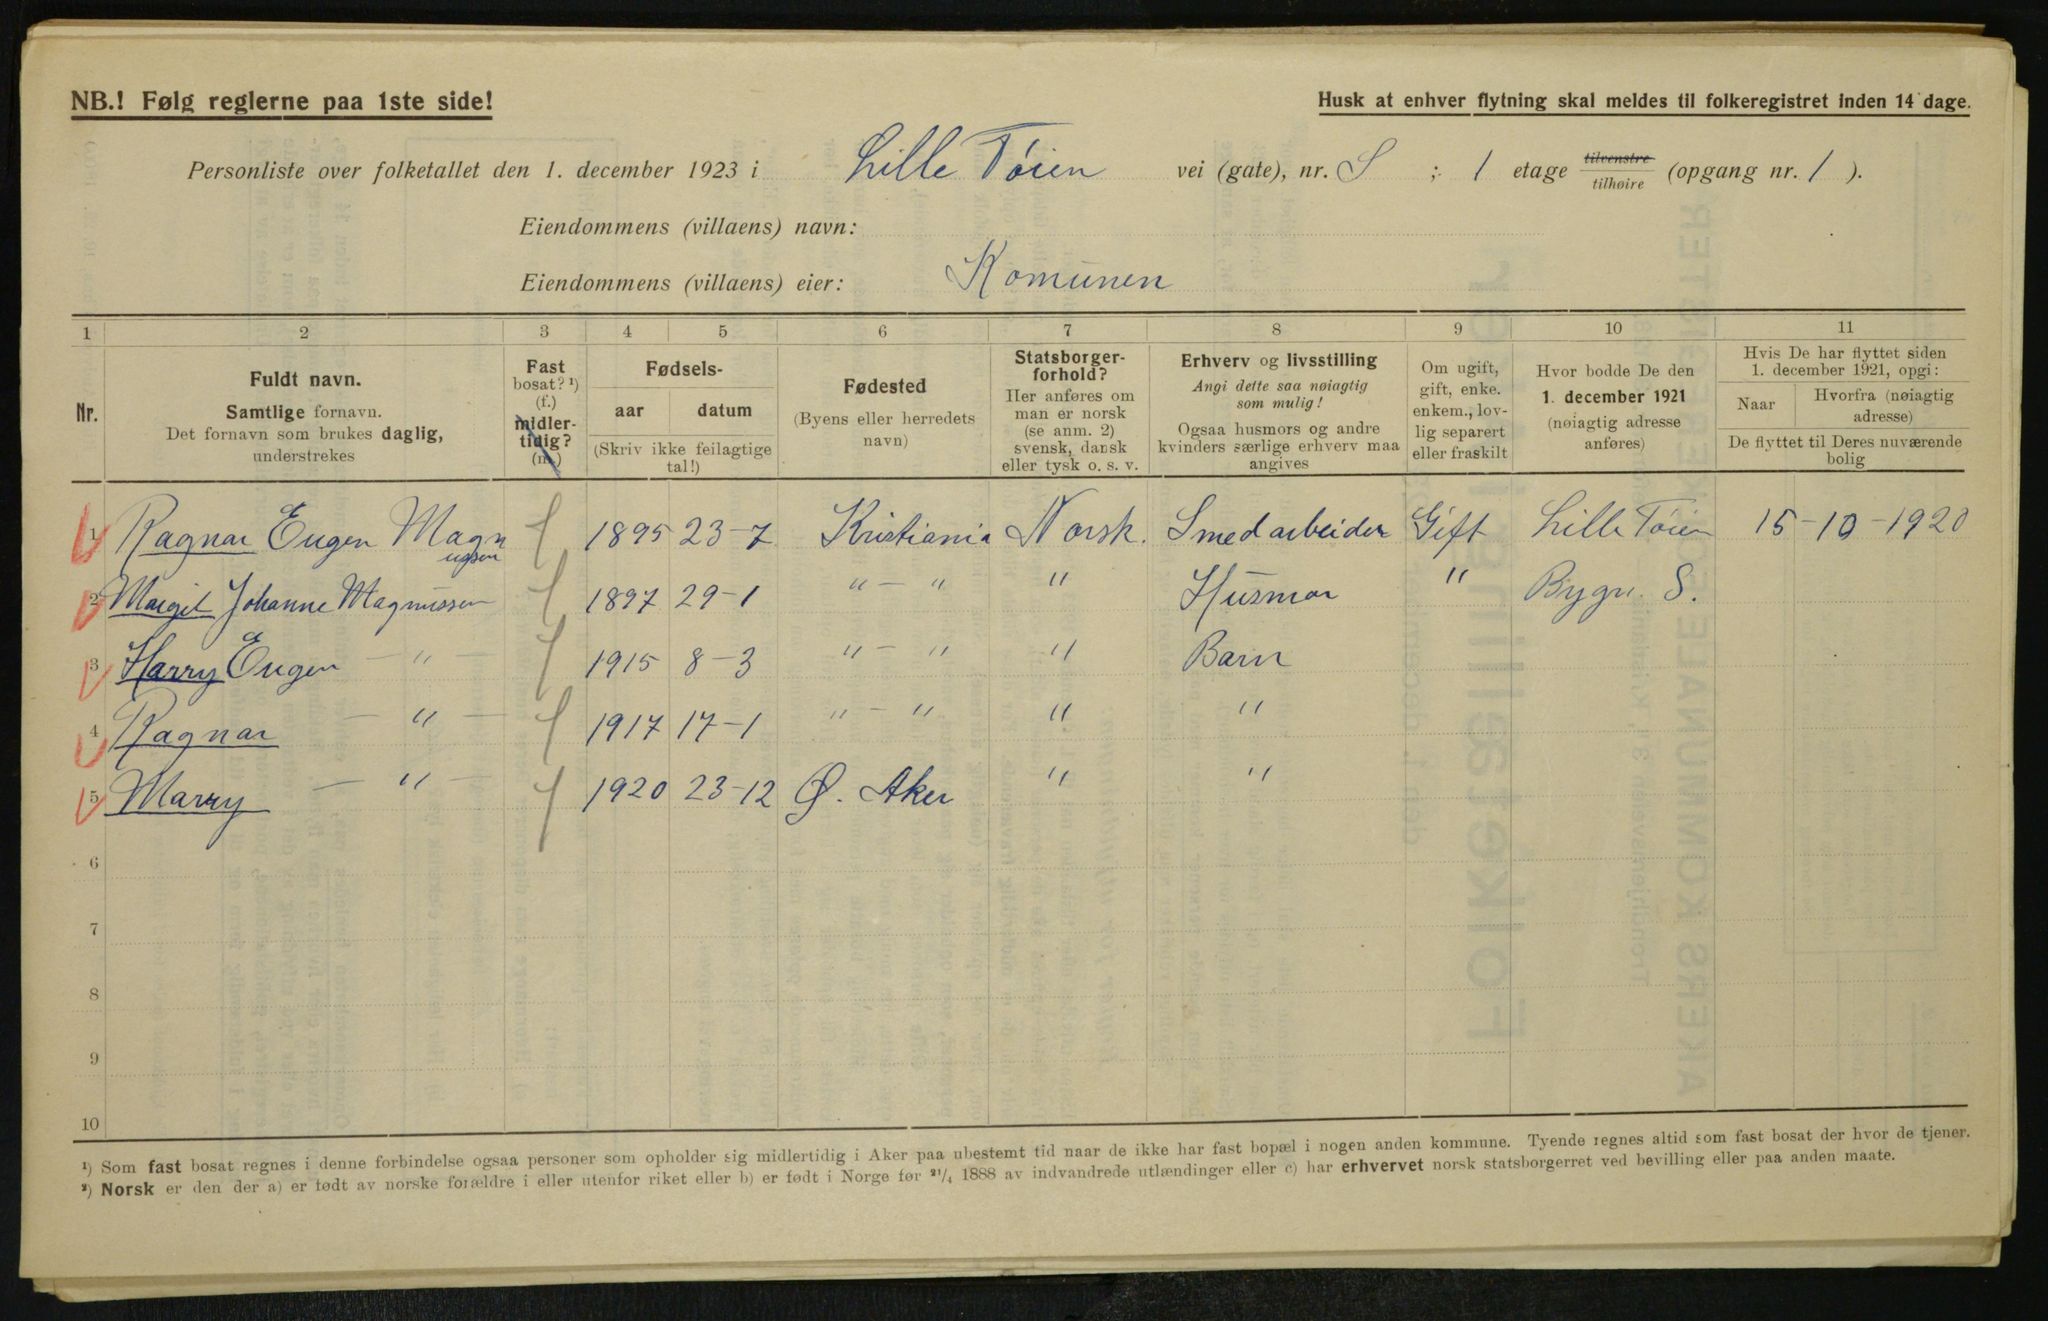 NB.! Følg reglerne paa 1ste side!
Husk at enhver flytning skal meldes til folkeregistret inden 14 dage.
Personliste over folketallet den 1. december 1923 i Lille Tøien vei (gate), nr. S ; 1 etage tilvenstre tilhøire (opgang nr. 1 ).
Eiendommens (villaens) navn:
Eiendommens (villaens) eier: Komunen
1 2 3 4 5 6 7 8 9 10 11
Nr.
Fuldt navn.
Samtlige fornavn.
Det fornavn som brukes daglig,
understrekes
Fast
bosat? ¹)
(f.)
midler-
tidig?
(m.)
Fødsels-
aar datum
(Skriv ikke feilagtige
tal!)
Fødested
(Byens eller herredets
navn)
Statsborger-
forhold?
Her anføres om
man er norsk
(se anm. 2)
svensk, dansk
eller tysk o. s. v.
Erhverv og livsstilling
Angi dette saa nøiagtig
som mulig!
Ogsaa husmors og andre
kvinders særlige erhverv maa
angives
Om ugift,
gift, enke.
enkem., lov-
lig separert
eller fraskilt
Hvor bodde De den
1. december 1921
(nøiagtig adresse
anføres)
Hvis De har flyttet siden
1. december 1921, opgi:
Naar
Hvorfra (nøiagtig
adresse)
De flyttet til Deres nuværende
bolig
1 Ragnar Eugen Magn f 1895 23-7 Kristiania Norsk. Smedarbeider Gift Lille Tøien 15-10-1920
ussen
2 Margit Johanne Magnussen f 1897 29-1 " - " " Husmor " Bygn. S.
3 Harry Eugen - " - f 1915 8-3 " - " " Barn
4 Ragnar - " - f 1917 17-1 " - " " "
5 Marry - " - f 1920 23-12 Ø. Aker " "
6
7
8
9
10
¹) Som fast bosat regnes i denne forbindelse ogsaa personer som opholder sig midlertidig i Aker paa ubestemt tid naar de ikke har fast bopæl i nogen anden kommune. Tyende regnes altid som fast bosat der hvor de tjener.
²) Norsk er den der a) er født av norske forældre i eller utenfor riket eller b) er født i Norge før ²¹/₄ 1888 av indvandrede utlændinger eller c) har erhvervet norsk statsborgerret ved bevilling eller paa anden maate.